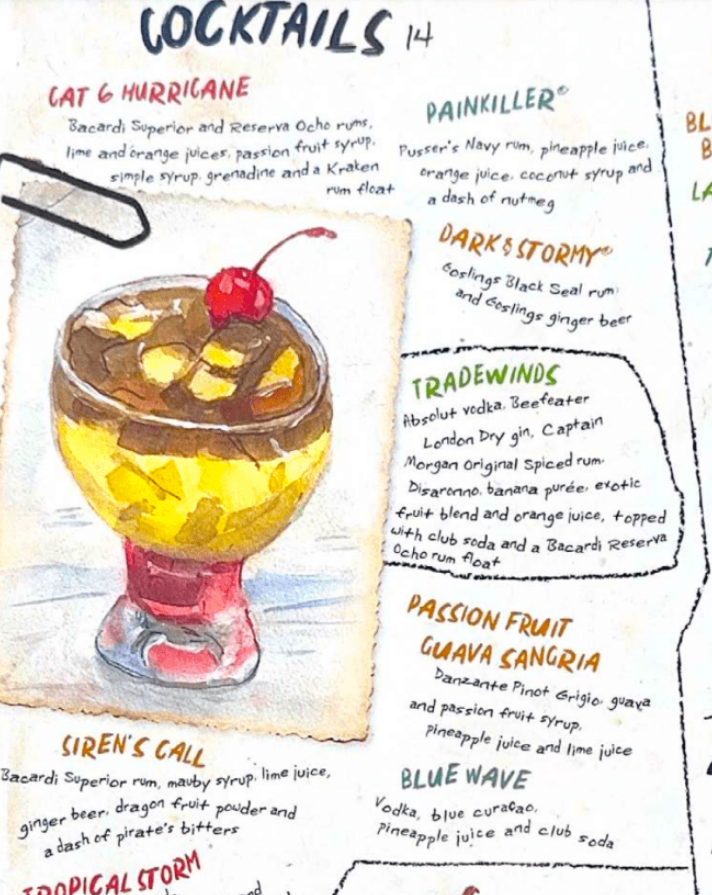 COCKTAILS 14
CAT 6 HURRICANE
Bacardi Superior and Reserva Ocho rums,
lime and orange juices, passion fruit syrup,
simple syrup, grenadine and a Kraken
rum float
PAINKILLER®
Pusser's Navy rum, pineapple juice,
orange juice, coconut syrup and
a dash of nutmeg
DARK & STORMY®
Goslings Black Seal rum
and Goslings ginger beer
TRADEWINDS
Absolut vodka, Beefeater
London Dry gin, Captain
Morgan Original Spiced rum,
Disaronno, banana purée, exotic
fruit blend and orange juice, topped
with club soda and a Bacardi Reserva
Ocho rum float
PASSION FRUIT
GUAVA SANGRIA
Danzante Pinot Grigio, guava
and passion fruit syrup,
pineapple juice and lime juice
SIREN'S CALL
Bacardi Superior rum, mauby syrup, lime juice,
ginger beer, dragon fruit powder and
a dash of pirate's bitters
BLUE WAVE
Vodka, blue curaçao,
pineapple juice and club soda
TROPICAL STORM